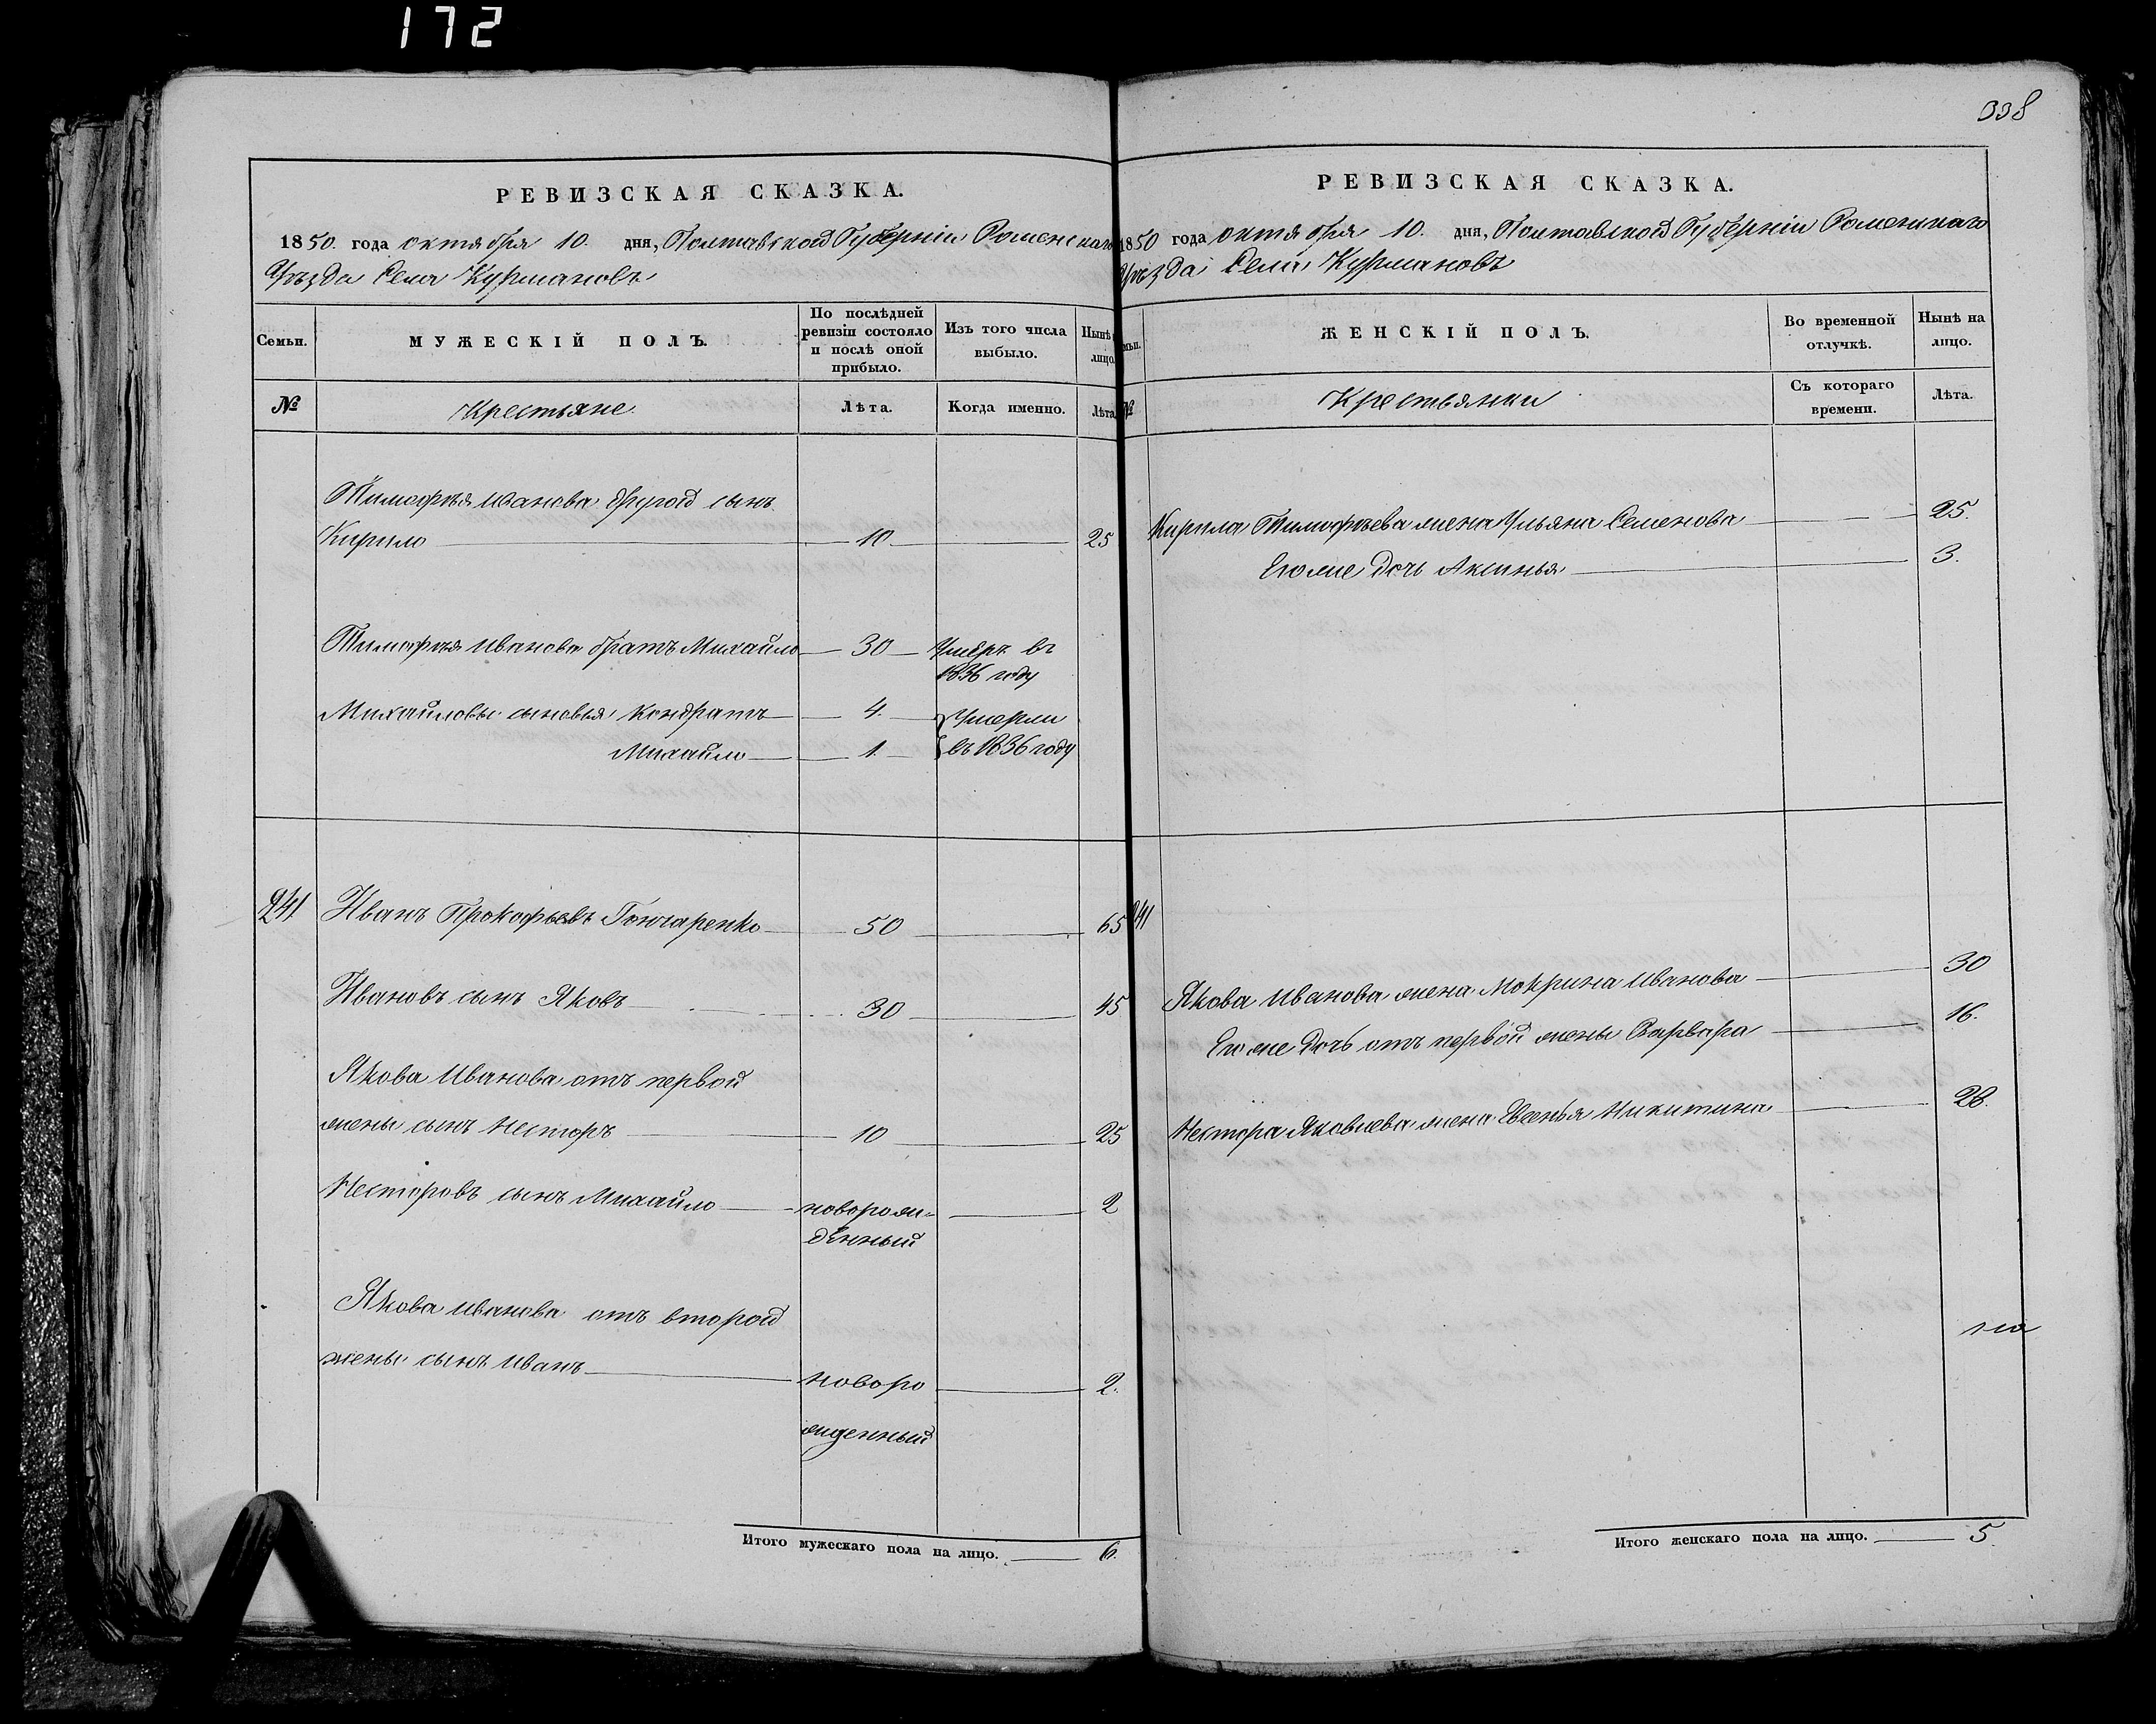 172
РЕВИЗСКАЯ СКАЗКА.
1850. года октября 10. дня, Полтавской Губерніи Роменскаго
Уѣзда Села Курмановъ
Семьи.
МУЖЕСКІЙ ПОЛЪ.
По послѣдней
ревизіи состояло
и послѣ оной
прибыло.
Изъ того числа
выбыло.
Нынѣ
лицо.
№
Крестьяне
Лѣта.
Когда именно.
Лѣта
Тимофѣя Иванова другой сынъ
Кирило 10 25
Тимофѣя Иванова братъ Михайло 30 Умеръ въ
1836 году
Михайловы сыновья Кондратъ 4. Умерли
Михайло 1. въ 1836 году
241 Иванъ Прокофьевъ Гончаренко 50 65
Ивановъ сынъ Яковъ 30 45
Якова Иванова отъ первой
жены сынъ Несторъ 10 25
Несторовъ сынъ Михайло новорож=
денный 2
Якова Иванова отъ второй
жены сынъ Иванъ новоро
жденный 2.
Итого мужескаго пола на лицо. 6.
338
РЕВИЗСКАЯ СКАЗКА.
1850 года октября 10. дня, Полтавской Губерніи Роменскаго
Уѣзда Села Курмановъ
мьи.
ЖЕНСКІЙ ПОЛЪ.
Во временной
отлучкѣ.
Нынѣ на
лицо.
№
Крестьянки
Съ котораго
времени.
Лѣта.
Кирила Тимофѣева жена Ульяна Семенова 25.
Его же дочь Аксинья 3.
241
Якова Иванова жена Мокрина Иванова 30
Его же дочь отъ первой жены Варвара 16.
Нестора Яковлева жена Евгенья Никитина 28.
Итого женскаго пола на лицо. 5.